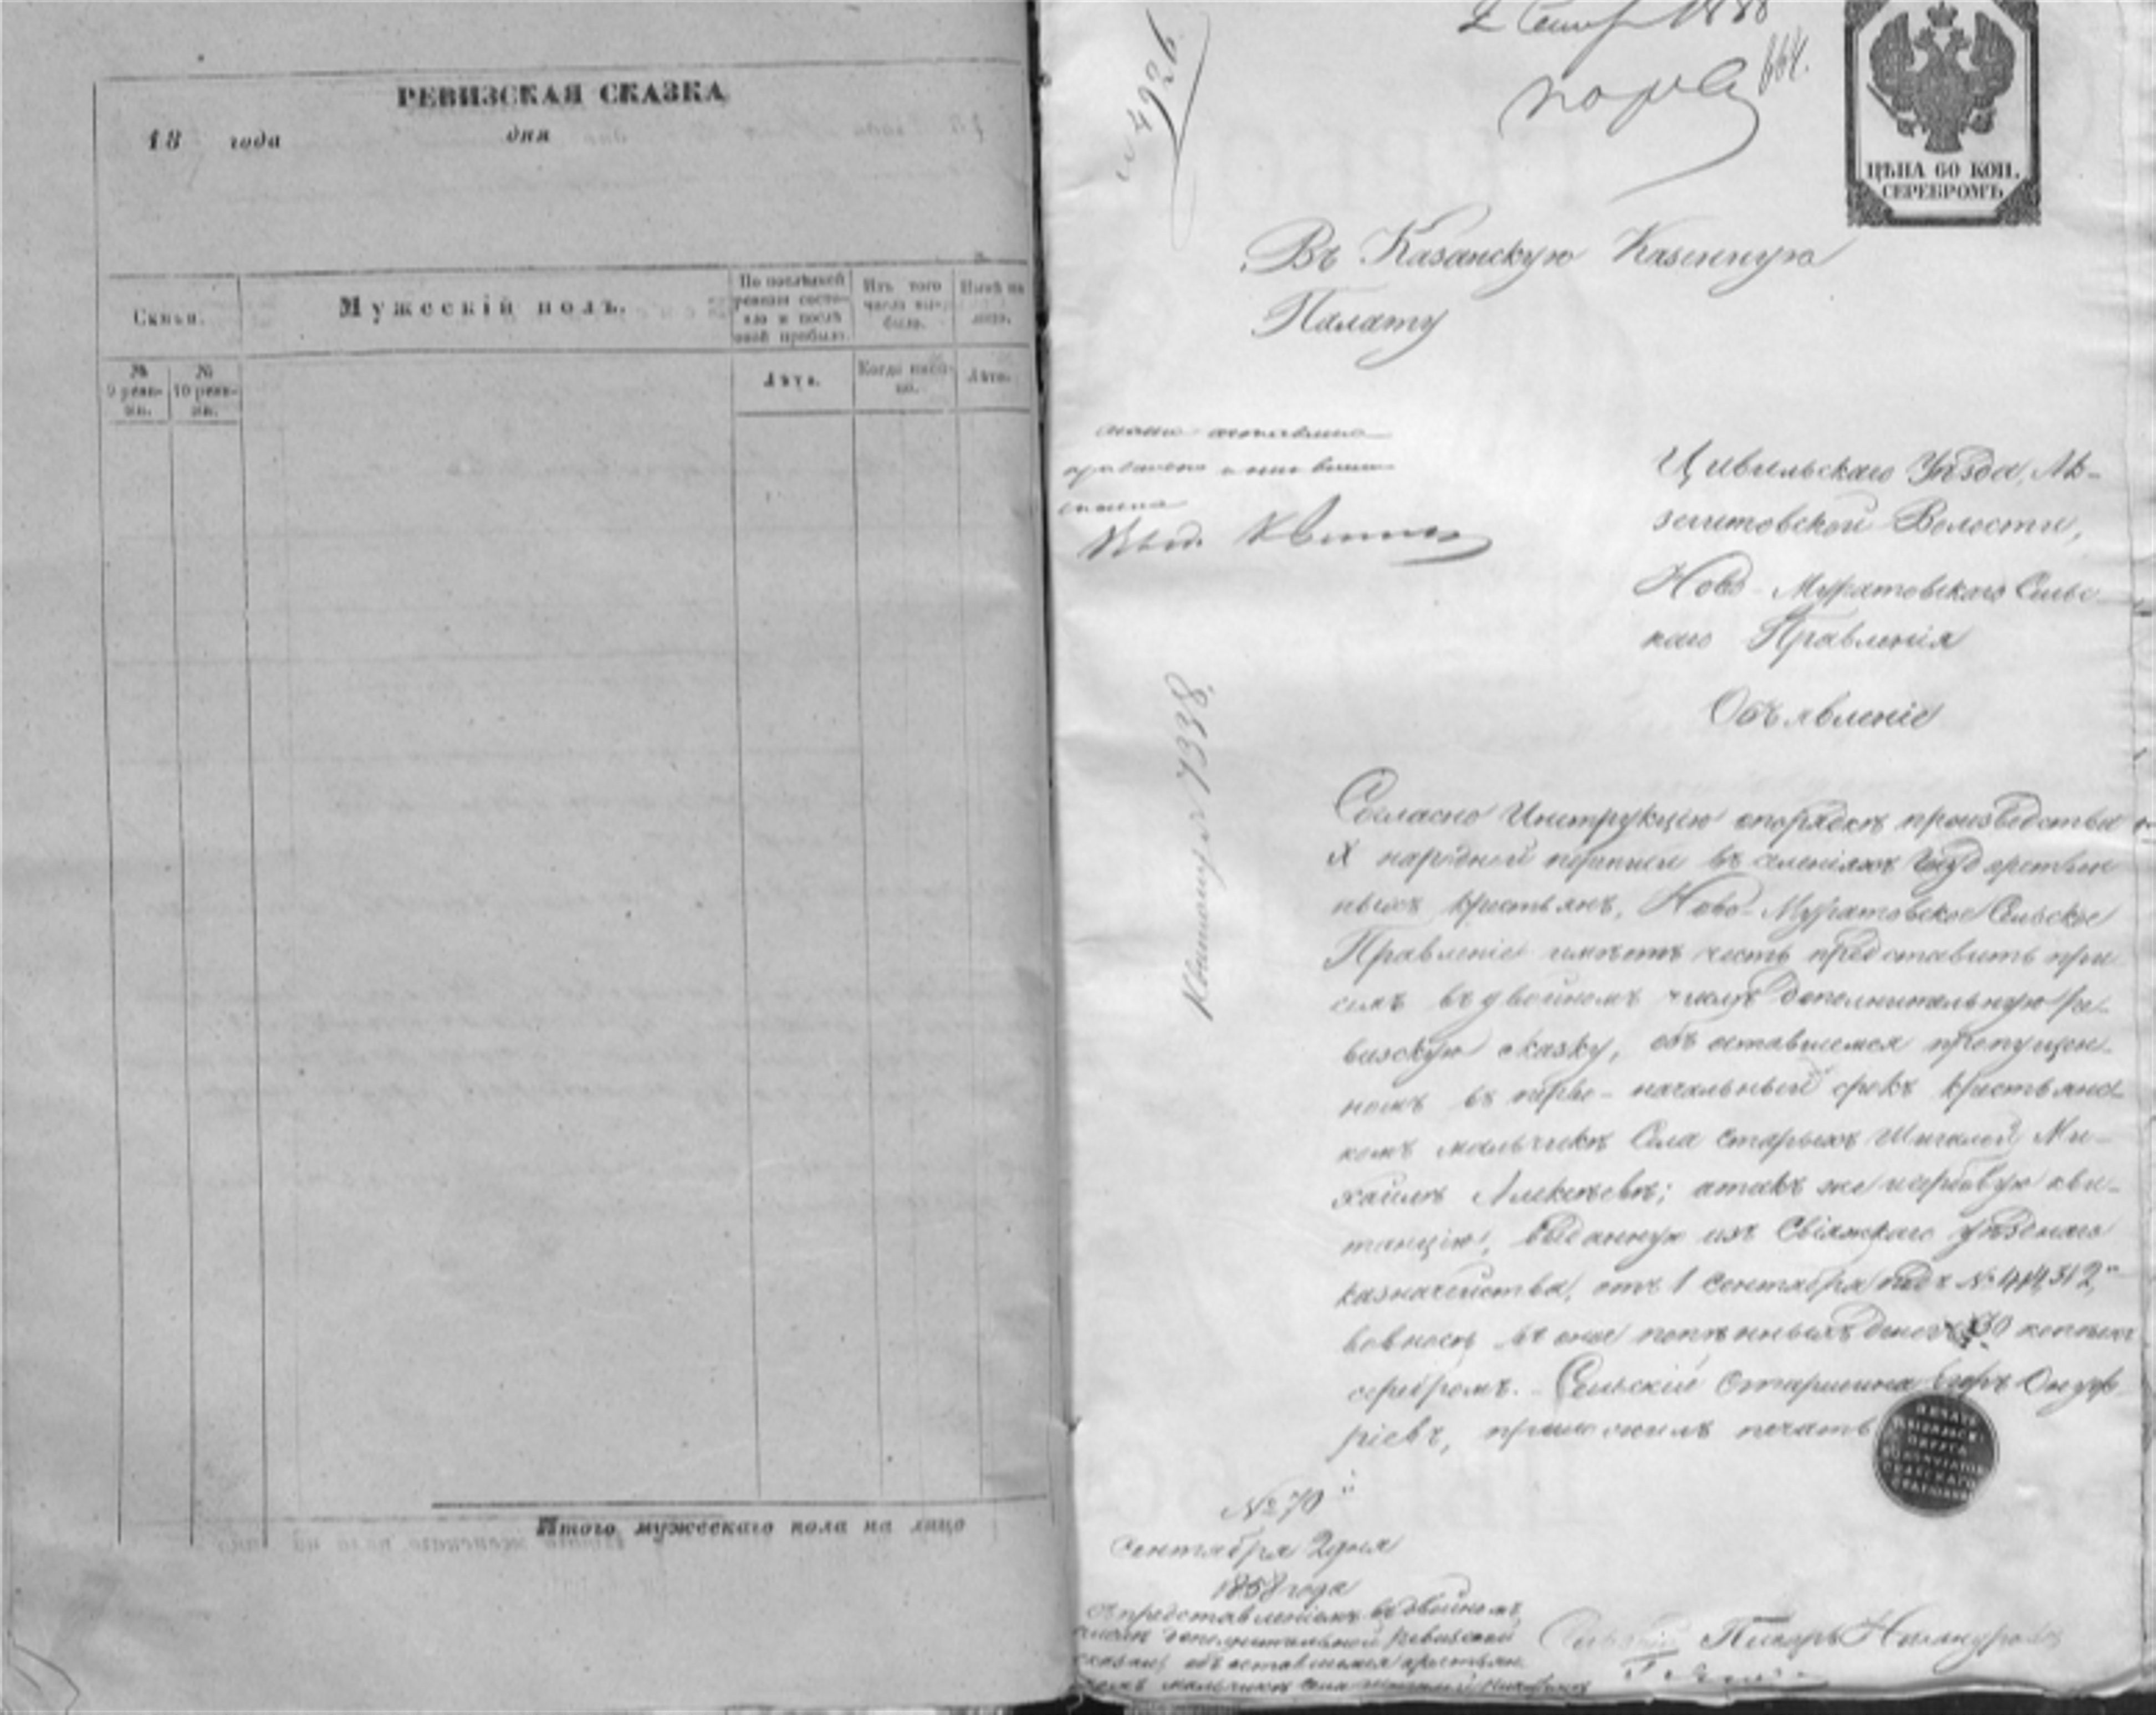 РЕВИЗСКАЯ СКАЗКА
18 года дня
Мужескій полъ.
По послѣдней ревизіи состояло и послѣ оной прибыло.
Изъ того числа выбыло.
№ 9 ревизіи.
№ 10 ревизіи.
Лѣта.
Когда именно.
Лѣта.
Итого мужескаго пола на лицо
ЦѢНА 60 КОП.
СЕРЕБРОМЪ
Въ Казанскую Казенную
Палату
Цивильскаго Уѣзда,
Волости,
Ново-Муратовскаго Сельс
каго Правленія
Объявленіе
Согласно Инструкцію опорядкѣ производства
X народной переписи въ селеніяхъ Государствен
ныхъ крестьянъ, Ново-Муратовское Сельское
Правленіе имѣетъ честь представить при
семъ въ двойномъ числѣ дополнительную Ре-
визскую сказку, объ оставшемся пропущен-
номъ въ перво-начальный срокъ крестьянс-
комъ мальчикѣ Села Старыхъ Шигалей Ми-
хаилѣ Алексѣевѣ; атакъ же гербовую кви-
танцію, выданную изъ Свіяжскаго уѣзднаго
казначейства, отъ 1 Сентября подъ №
серебромъ. Сельскій Старшина Онуф
ріевъ, приложилъ печать
№ 70
Сентября 2 дня
1858 года
Спредставленіемъ въ двойномъ
числѣ дополнительной ревизской
сказки, объ оставшемся крестьян
комъ мальчикѣ Села
Писарь
Квитанція 7338.